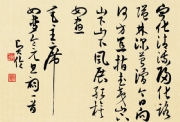 宁化清流归化路
隘林深苔滑今日向
何方直指武夷山下
山下山下风展红旗
如画
毛主席
如梦令元旦词一首